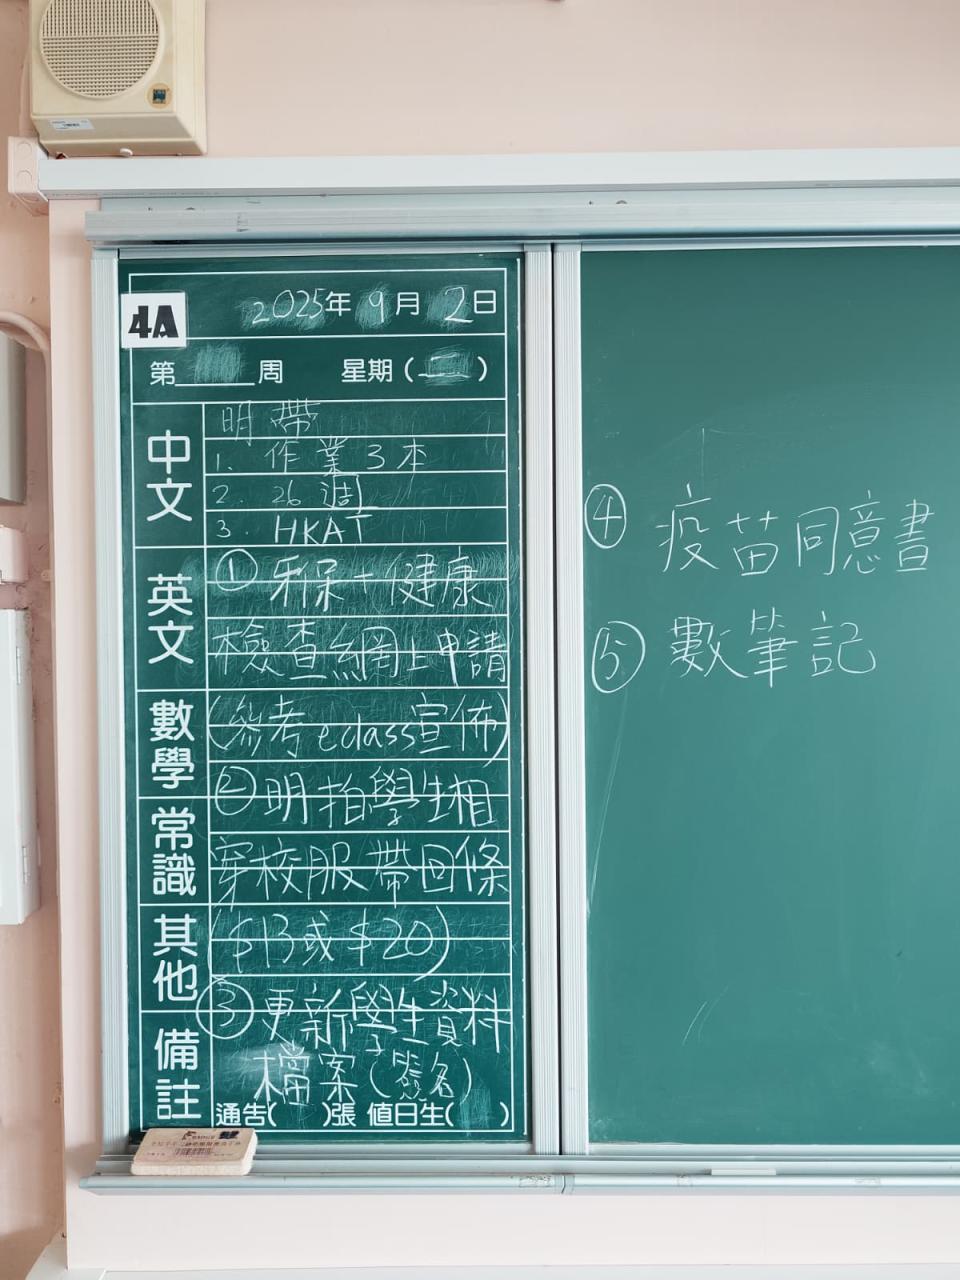 4A
2025年9月2日
第 周 星期(二)
中文
明帶
1. 作業3本
2. 26週
3. HKAT
英文
① 牙保+健康
檢查網上申請
數學
(參考eclass宣佈)
② 明拍學生相
常識
穿校服帶回條
其他
($13或$20)
③ 更新學生資料
備註
檔案(簽名)
通告( )張 值日生( )
④ 疫苗同意書
⑤ 數筆記